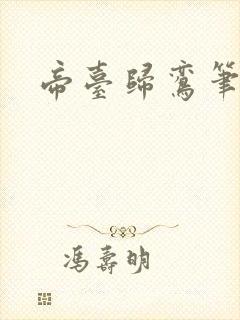 帝臺歸鸞筆
馮壽明